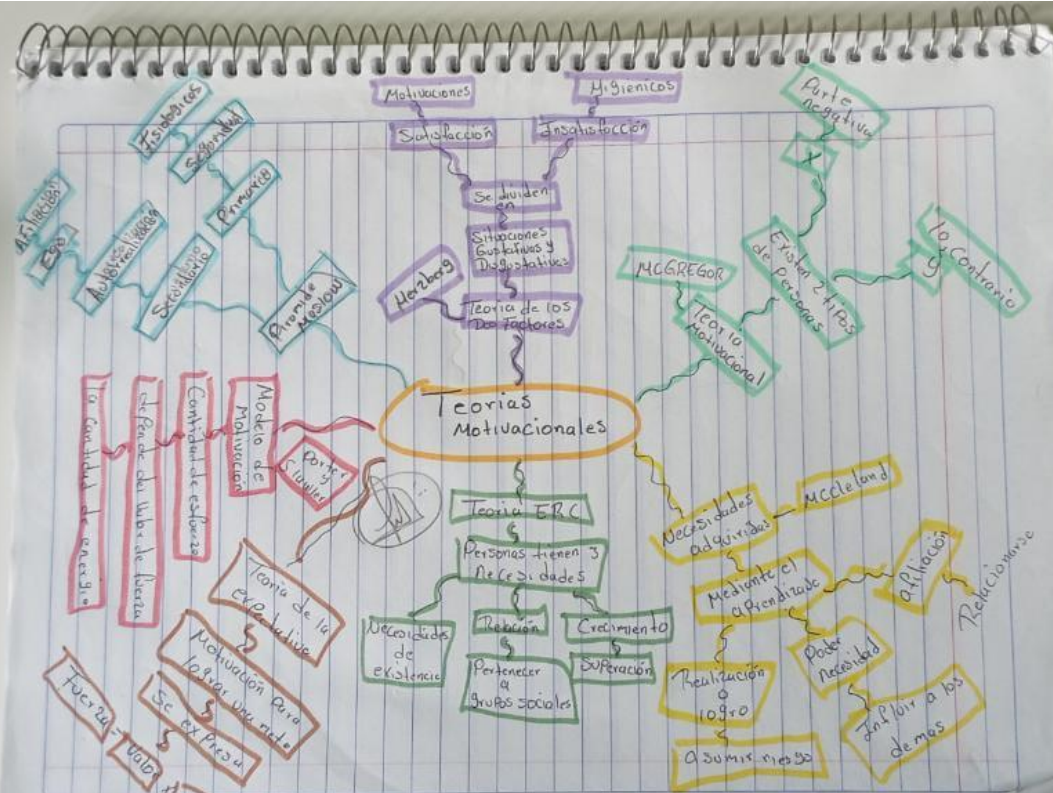 Teorias
Motivacionales
Piramide
Maslow
Primario
Seguridad
Fisiologicos
Secundario
Ego
Afiliación
Teoria de los
Dos Factores
Herzberg
Situaciones
Gustativas y
Disgustativas
Se dividen
en
Satisfacción
Motivaciones
Insatisfacción
Higienicos
Teoria
Motivacional
MCGREGOR
Existen 2 tipos
de Personas
X
Parte
negativa
Y
lo Contrario
Necesidades
adquiridas
MCCleland
Mediante el
aprendizaje
afiliación
Relacionarse
Poder
necesidad
Influir a los
demas
Realización
o
logro
asumir riesgo
Teoria ERC
Personas tienen 3
necesidades
Necesidades
de
existencia
Relación
Pertenecer
a
grupos sociales
Crecimiento
Superación
Teoria de la
Motivación para
lograr una meta
Se expresa
Fuerza=
Valor
Modelo de
Motivación
Porter
y
Slawler
Cantidad de esfuerzo
depende del
de fuerza
la cantidad de energia